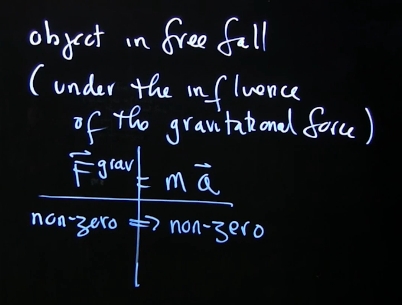 object in free fall
(under the influence
of the gravitational force)
F⃗ grav = m a⃗
non-zero => non-zero